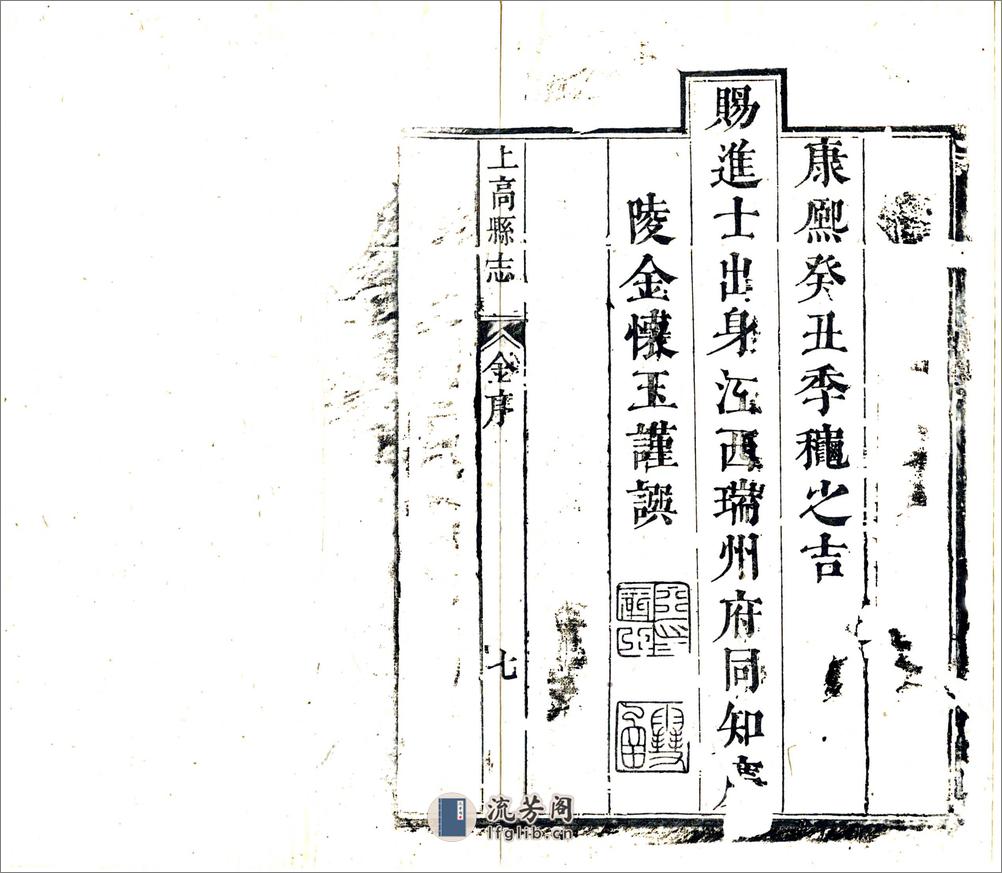 康熙癸丑季穐之吉
賜進士出身江西瑞州府同知廣
陵金懷玉謹譔
上高縣志
金序
七
流芳阁
lfglib.cn